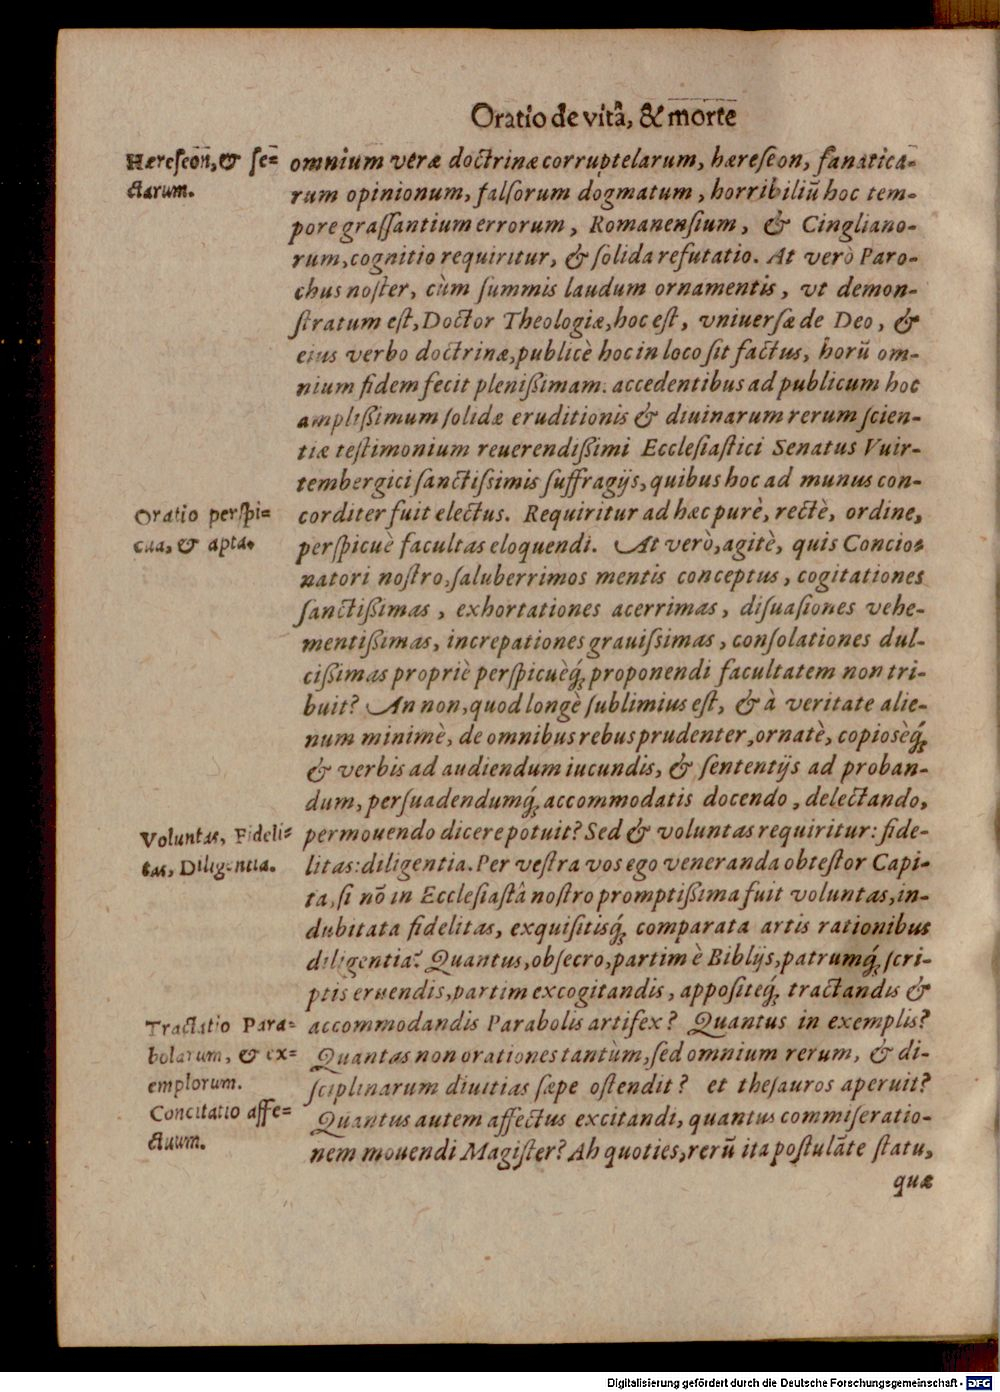 Oratio de vitâ, & morte
Hæreſeōn, & ſe=
ctarum.
omnium veræ doctrinæ corruptelarum, hæreſeon, fanatica-
rum opinionum, falſorum dogmatum, horribiliū hoc tem-
pore graſſantium errorum, Romanenſium, & Cingliano-
rum, cognitio requiritur, & ſolida refutatio. At verò Paro-
chus noſter, cùm ſummis laudum ornamentis, vt demon-
ſtratum eſt, Doctor Theologiæ, hoc eſt, vniuerſæ de Deo, &
eius verbo doctrinæ, publicè hoc in loco ſit factus, horū om-
nium fidem fecit pleniſſimam: accedentibus ad publicum hoc
ampliſſimum ſolidæ eruditionis & diuinarum rerum ſcien-
tiæ teſtimonium reuerendiſſimi Eccleſiaſtici Senatus Vuir-
tembergici ſanctiſsimis ſuffragijs, quibus hoc ad munus con-
Oratio perſpi=
cua, & apta.
corditer fuit electus. Requiritur ad hæc purè, rectè, ordine,
perſpicuè facultas eloquendi. At verò, agitè, quis Concio-
natori noſtro, ſaluberrimos mentis conceptus, cogitationes
ſanctißimas, exhortationes acerrimas, diſuaſiones vehe-
mentißimas, increpationes grauiſsimas, conſolationes dul-
cißimas propriè perſpicuèq́; proponendi facultatem non tri-
buit? An non, quod longè ſublimius eſt, & à veritate alie-
num minimè, de omnibus rebus prudenter, ornatè, copioſèq́;
& verbis ad audiendum iucundis, & ſententijs ad proban-
dum, perſuadendumq́; accommodatis docendo, delectando,
Voluntas, Fideli=
tas, Diligentia.
permouendo dicere potuit? Sed & voluntas requiritur: fide-
litas: diligentia. Per veſtra vos ego veneranda obteſtor Capi-
ta, ſi nō in Eccleſiaſtâ noſtro promptißima fuit voluntas, in-
dubitata fidelitas, exquiſitisq́; comparata artis rationibus
diligentia? Quantus, obſecro, partim è Biblijs, patrumq́; ſcri-
ptis eruendis, partim excogitandis, appoſiteq́; tractandis &
Tractatio Para=
bolarum, & ex=
emplorum.
accommodandis Parabolis artifex? Quantus in exemplis?
Quantas non orationes tantùm, ſed omnium rerum, & di-
ſciplinarum diuitias ſæpe oſtendit? et theſauros aperuit?
Concitatio affe=
ctuum.
Quantus autem affectus excitandi, quantus commiſeratio-
nem mouendi Magiſter? Ah quoties, rerū ita poſtulāte ſtatu,
quæ
Digitalisierung gefördert durch die Deutsche Forschungsgemeinschaft - DFG